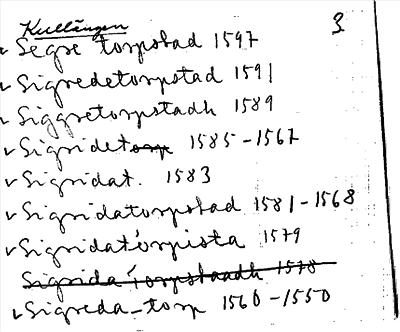 Kullängen 3
v Segre torpstad 1597
v Sigredetorpstad 1591
v Siggretorpstadh 1589
v Sigridetorp 1585-1567
v Sigridat. 1583
v Sigridatorpstad 1581-1568
v Sigridatórpista 1579
Sigrida torpstaadh 1578
v Sigreda-torp 1560-1550